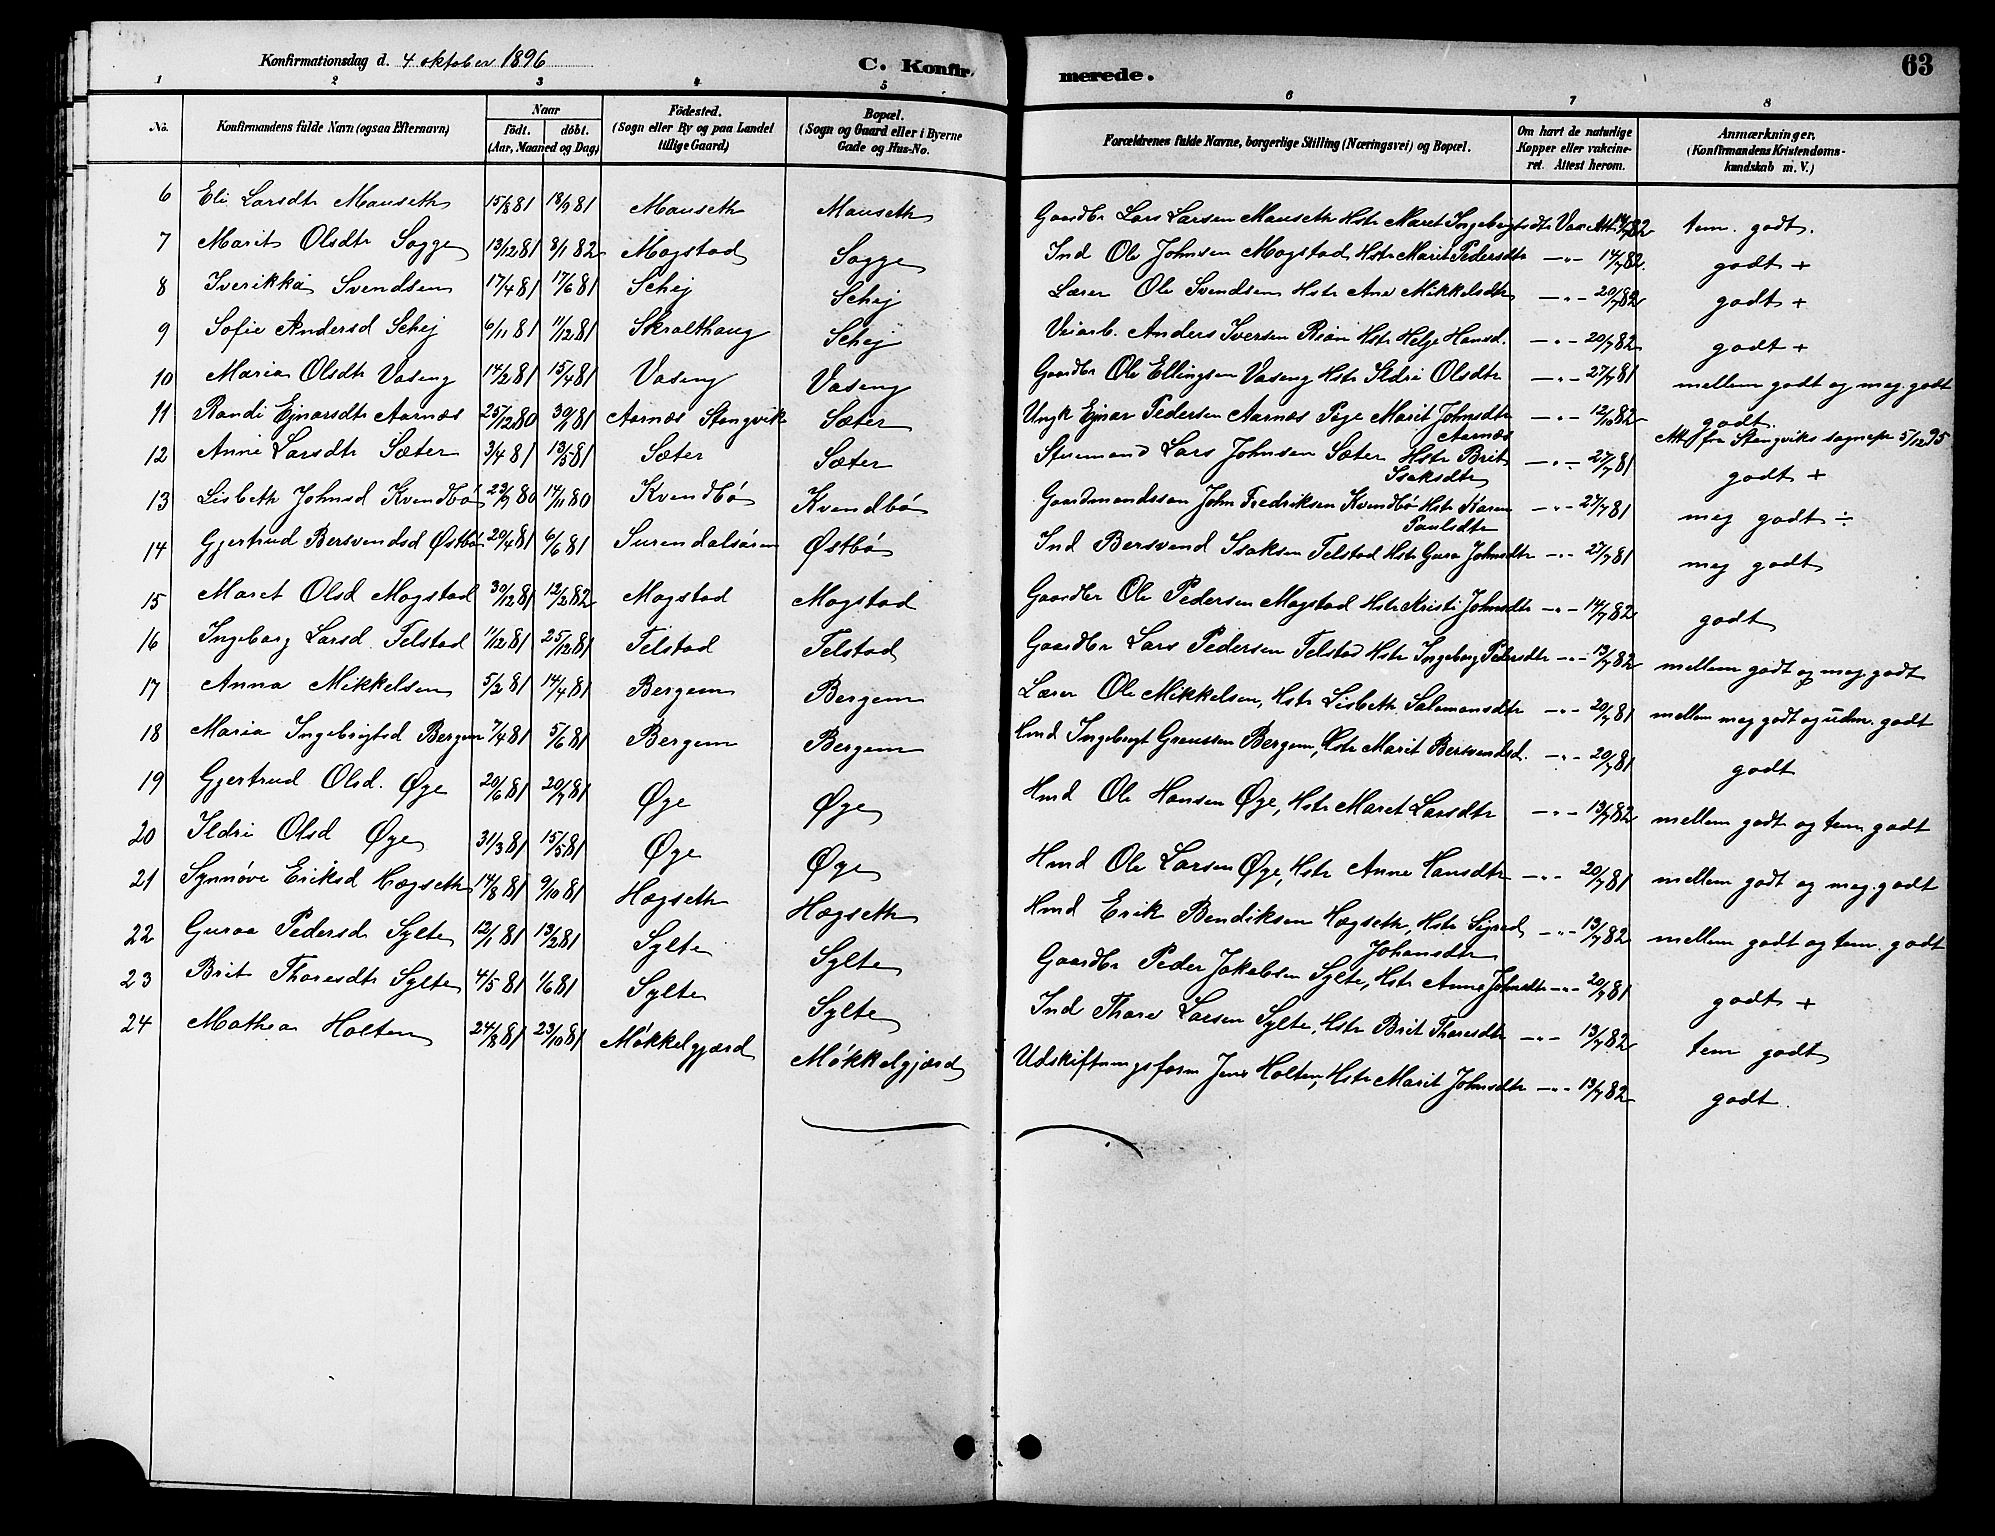 Konfirmationsdag d. 4 oktober 1896
C. Konfirmerede.
63
1 2 3 4 5 6 7 8
No.
Konfirmandens fulde Navn (ogsaa Efternavn)
Naar
födt. döbt.
(Aar, Maaned og Dag)
Födested.
(Sogn eller By og paa Landet
tillige Gaard)
Bopæl.
(Sogn og Gaard eller i Byerne
Gade og Hus-No.
Forældrenes fulde Navne, borgerlige Stilling (Næringsvei) og Bopæl.
Om havt de naturlige
Kopper eller vakcine-
ret. Attest herom.
Anmærkninger,
(Konfirmandens Kristendoms-
kundskab m. V.)
6 Eli Larsdtr Mauseth 15/8 81 18/9 81 Mauseth Mauseth Gaardbr Lars Larsen Mauseth Hstr Maret Ingebrigtsdtr Vax Att 14/7 82 tem. godt.
7 Marit Olsdtr Sogge 13/12 81 8/1 82 Mogstad Sogge Ind Ole Johnsen Mogstad Hstr Marit Pedersdtr —"— 14/7 82. godt +
8 Iverikka Svendsen 17/4 81 17/6 81 Schej Schej Lærer Ole Svendsen Hstr Ane Mikkelsdtr —"— 20/7 82 godt +
9 Sofie Andersd Schej 6/11 81 11/12 81 Skralthaug Schej Veiarb. Anders Iversen Røan Hstr Helge Hansd. —"— 20/7 82 godt +
10 Maria Olsdtr Vaseng 14/2 81 15/4 81 Vaseng Vaseng Gaardbr Ole Ellingsen Vaseng Hstr Ildri Olsdtr —"— 27/7 81 mellem godt og meg. godt
11 Randi Ejnarsdtr Aarnæs 25/12 80 30/1 81 Aarnæs Stangvik Sæter Ungk Ejnar Pedersen Aarnæs Pige Marit Johnsdtr Aarnæs —"— 12/10 82 godt. Att fra Stangviks sognepr 5/12 95
12 Anne Larsdtr Sæter 3/4 81 13/5 81 Sæter Sæter Sturmand Lars Johnsen Sæter Hstr Brit Isaksdtr —"— 27/7 81 godt +
13 Lisbeth Johnsd Kvendbø 23/9 80 14/11 80 Kvendbø Kvendbø Gaardmandssøn John Fredriksen Kvendbø Hstr Karen Paulsdtr —"— 27/7 81 meg godt ÷
14 Gjertrud Bersvendsd Østbø 20/4 81 6/6 81 Surendalsøren Østbø Ind Bersvend Isaksen Telstad Hstr Guro Johnsdtr —"— 27/7 81 meg godt
15 Maret Olsd Mogstad 30/12 81 12/2 82 Mogstad Mogstad Gaardbr Ole Pedersen Mogstad Hstr Kristi Johnsdtr —"— 14/7 82 godt
16 Ingeborg Larsd. Telstad 11/12 81 25/12 81 Telstad Telstad Gaardbr Lars Pedersen Telstad Hstr Ingeborg Pedersdtr —"— 13/7 82 mellem godt og meg. godt
17 Anna Mikkelsen 5/2 81 14/4 81 Bergem Bergem Lærer Ole Mikkelsen, Hstr Lisbeth Salomonsdtr —"— 20/7 81 mellem meg godt og udm. godt
18 Maria Ingebrigtsd Bergem 7/4 81 5/6 81 Bergem Bergem Hmd Ingebrigt Graussen Bergem, Hstr Marit Bersvendsd. —"— 20/7 81 godt
19 Gjertrud Olsd. Øye 20/6 81 20/7 81 Øye Øye Hmd Ole Hansen Øye, Hstr Maret Larsdtr —"— 13/7 82 mellem godt og tem godt
20 Ildri Olsd Øye 31/3 81 15/5 81 Øye Øye Hmd Ole Larsen Øye, Hstr Anne Hansdtr —"— 20/7 81 mellem godt og meg. godt
21 Synnøve Eriksd Hægseth 14/8 81 9/10 81 Hægseth Hægseth Hmd Erik Bendiksen Hægseth, Hstr Sigrid Johansdtr —"— 13/7 82 mellem godt og tem. godt
22 Guroe Pedersd Sylte 12/1 81 13/2 81 Sylte Sylte Gaardbr Peder Jakobsen Sylte, Hstr Anne Johnsdtr —"— 20/7 81 godt +
23 Brit Thoresdtr Sylte 4/5 81 1/6 81 Sylte Sylte Ind Thore Larsen Sylte, Hstr Brit Thoresdtr —"— 13/7 82 tem godt
24 Mathea Holten 24/8 81 23/10 81 Møkkelgjærd Møkkelgjærd Udskiftningsform Jens Holten, Hstr Marit Johnsdtr —"— 13/7 82 godt.